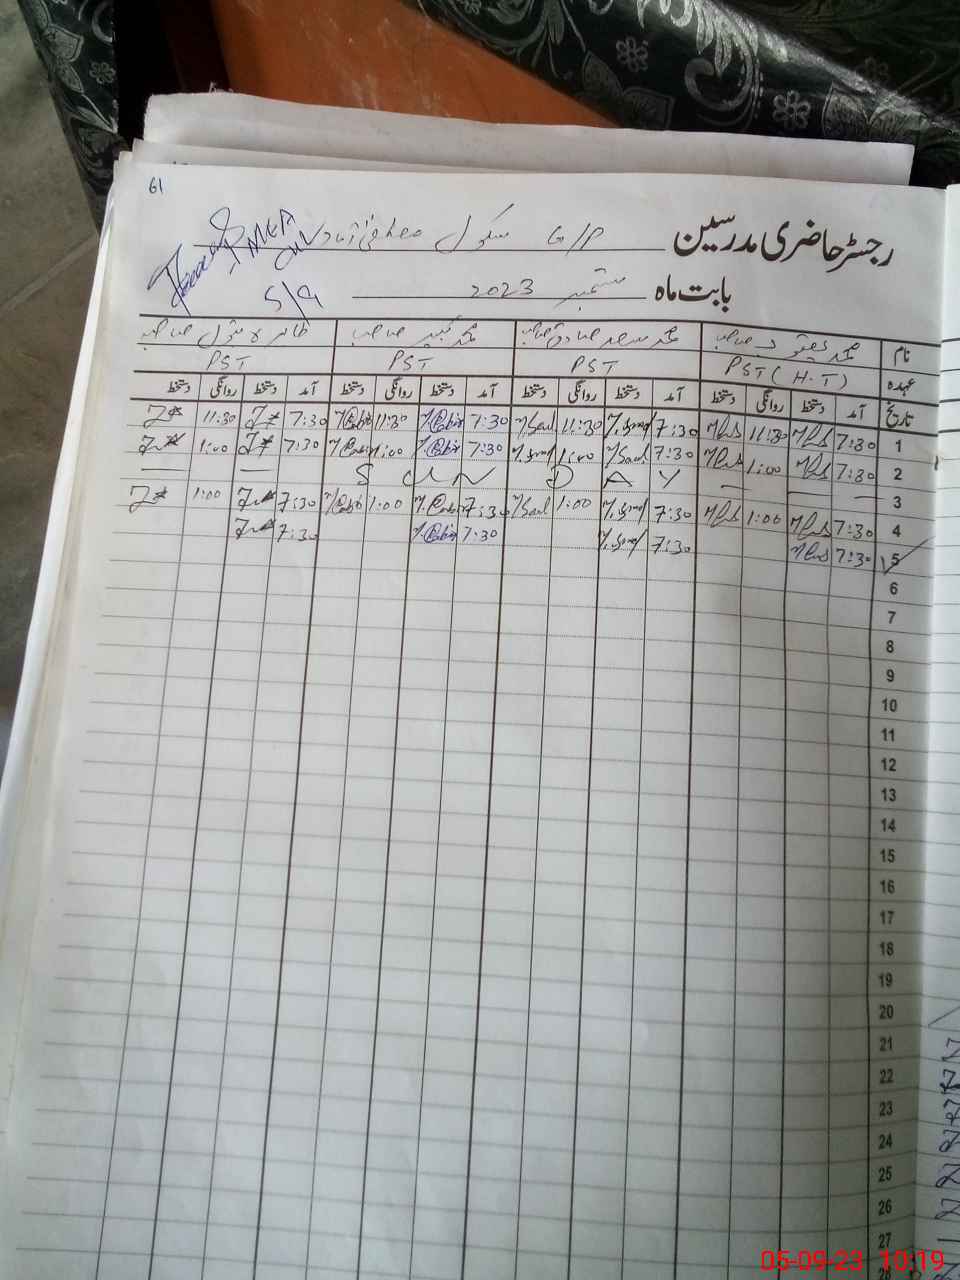 61
رجسٹر حاضری مدرسین سکول مصطفیٰ آباد
بابت ماہ ستمبر 2023
5/9
نام محمد یعقوب صاحب محمد سعد صادق صاحب محمد کبیر صاحب طاہر رسول صاحب
عہدہ PST (H.T) PST PST PST
تاریخ آمد دستخط روانگی دستخط آمد دستخط روانگی دستخط آمد دستخط روانگی دستخط آمد دستخط روانگی دستخط
1 7:30 11:30 7:30 11:30 7:30 11:30 7:30 11:30
2 7:30 1:00 7:30 1:00 7:30 1:00 7:30 1:00
3 SUNDAY
4 7:30 1:00 7:30 1:00 7:30 1:00 7:30 1:00
5 7:30 7:30 7:30 7:30
6
7
8
9
10
11
12
13
14
15
16
17
18
19
20
21
22
23
24
25
26
27
28
05-09-23 10:19